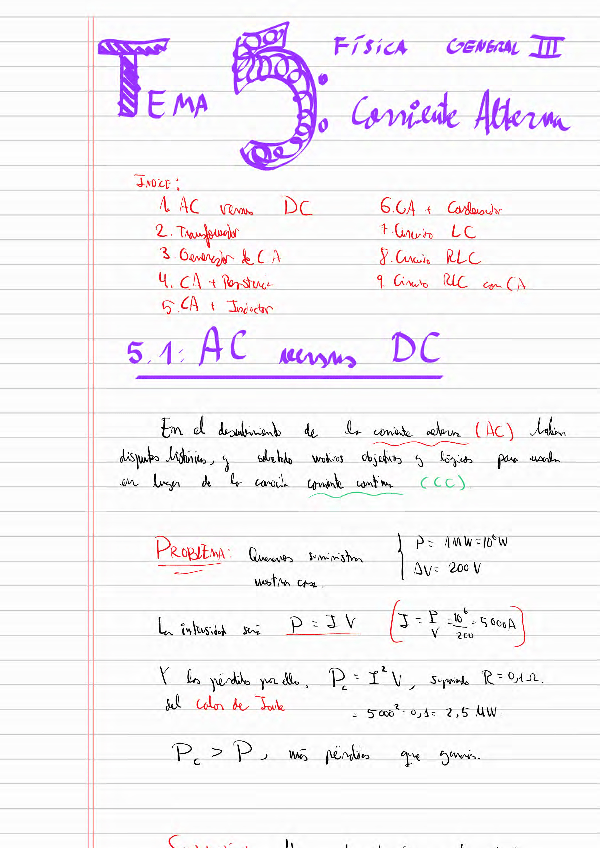 TEMA 5:
FÍSICA GENERAL III
Corriente Alterna
ÍNDICE:
1. AC versus DC
2. Transformador
3 Generador de CA
4. CA + Resistencia
5. CA + Inductor
6. CA + Condensador
7. Circuito LC
8. Circuito RLC
9. Circuito RLC con CA
5.1: AC versus DC
En el descubrimiento de la corriente alterna (AC) habían
disputas históricas, y sobretodo motivos objetivos y lógicos para usarla
en lugar de la corriente continua (CC).
PROBLEMA: Queremos suministrar
nuestra casa.
P = 1 MW = 10⁶ W
ΔV = 200 V
La intensidad será P = I V (I = P/V = 10⁶/200 = 5000A)
Y las pérdidas por ello, P_c = I² V, suponiendo R = 0,1 Ω.
del calor de Joule
= 5000² · 0,1 = 2,5 MW
P_c > P, más pérdidas que ganancias.